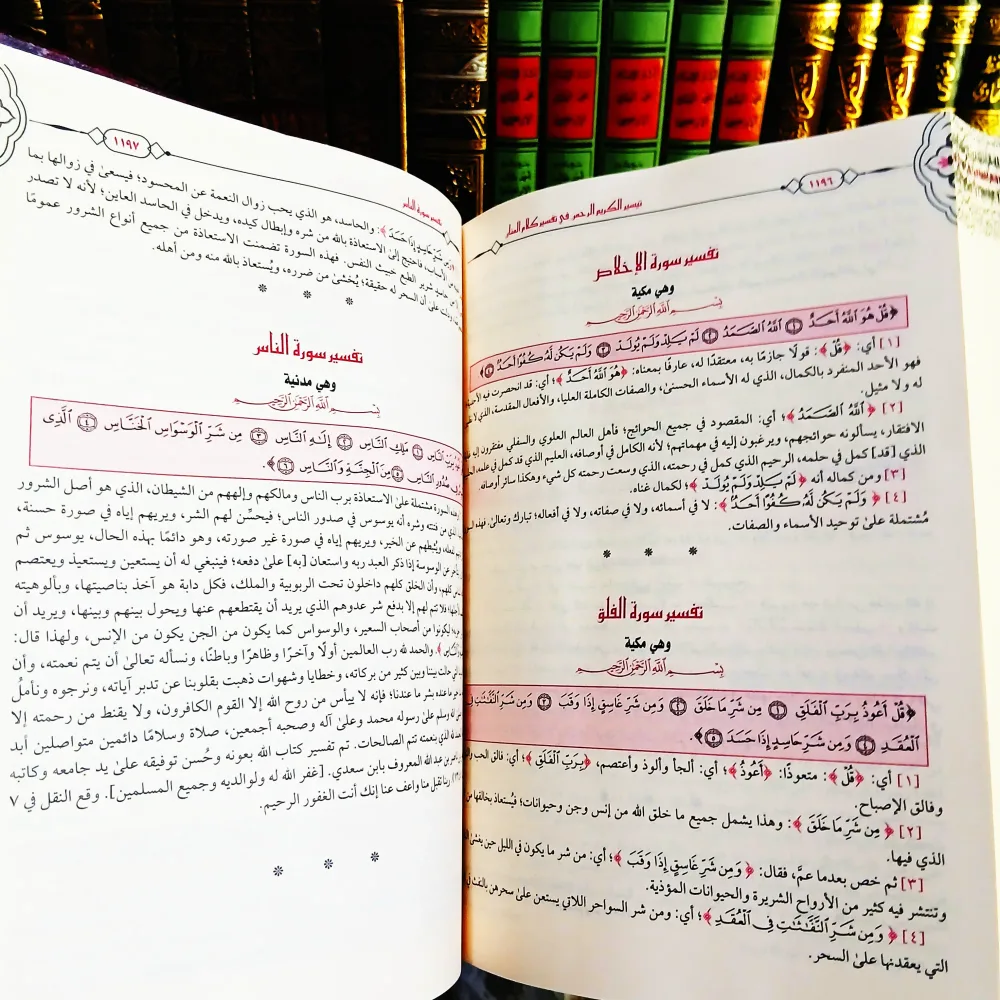 ١١٩٦
تيسير الكريم الرحمن في تفسير كلام المنان
تفسير سورة الإخلاص
وهي مكية
بِسْمِ ٱللَّهِ ٱلرَّحْمَٰنِ ٱلرَّحِيمِ
﴿قُلْ هُوَ ٱللَّهُ أَحَدٌ ١ ٱللَّهُ ٱلصَّمَدُ ٢ لَمْ يَلِدْ وَلَمْ يُولَدْ ٣ وَلَمْ يَكُن لَّهُۥ كُفُوًا أَحَدٌۢ ٤﴾
[١] أي: ﴿قُلْ﴾: قولًا جازمًا به، معتقدًا له، عارفًا بمعناه: ﴿هُوَ ٱللَّهُ أَحَدٌ﴾؛ أي: قد انحصرت فيه
فهو الأحد المنفرد بالكمال، الذي له الأسماء الحسنىٰ، والصفات الكاملة العليا، والأفعال المقدسة، الذي لا
له ولا مثيل.
[٢] ﴿ٱللَّهُ ٱلصَّمَدُ﴾؛ أي: المقصود في جميع الحوائج؛ فأهل العالم العلوي والسفلي مفتقرون إليه
الافتقار، يسألونه حوائجهم، ويرغبون إليه في مهماتهم؛ لأنه الكامل في أوصافه، العليم الذي قد كمل في علمه،
الذي [قد] كمل في حلمه، الرحيم الذي كمل في رحمته، الذي وسعت رحمته كل شيء وهكذا سائر أوصافه.
[٣] ومن كماله أنه ﴿لَمْ يَلِدْ وَلَمْ يُولَدْ﴾؛ لكمال غناه.
[٤] ﴿وَلَمْ يَكُن لَّهُۥ كُفُوًا أَحَدٌۢ﴾: لا في أسمائه، ولا في صفاته، ولا في أفعاله؛ تبارك وتعالىٰ؛ فهذه
مُشتملة علىٰ توحيد الأسماء والصفات.
تفسير سورة الفلق
وهي مكية
بِسْمِ ٱللَّهِ ٱلرَّحْمَٰنِ ٱلرَّحِيمِ
﴿قُلْ أَعُوذُ بِرَبِّ ٱلْفَلَقِ ١ مِن شَرِّ مَا خَلَقَ ٢ وَمِن شَرِّ غَاسِقٍ إِذَا وَقَبَ ٣ وَمِن شَرِّ ٱلنَّفَّٰثَٰتِ فِى
ٱلْعُقَدِ ٤ وَمِن شَرِّ حَاسِدٍ إِذَا حَسَدَ ٥﴾.
[١] أي: ﴿قُلْ﴾: متعوذًا: ﴿أَعُوذُ﴾؛ أي: ألجأ وألوذ وأعتصم، ﴿بِرَبِّ ٱلْفَلَقِ﴾؛ أي: فالق الحب
وفالق الإصباح.
[٢] ﴿مِن شَرِّ مَا خَلَقَ﴾: وهذا يشمل جميع ما خلق الله من إنس وجن وحيوانات؛ فيُستعاذ بخالقها من
الذي فيها.
[٣] ثم خص بعدما عمَّ، فقال: ﴿وَمِن شَرِّ غَاسِقٍ إِذَا وَقَبَ﴾؛ أي: من شر ما يكون في الليل حين يغشىٰ
وتنتشر فيه كثير من الأرواح الشريرة والحيوانات المؤذية.
[٤] ﴿وَمِن شَرِّ ٱلنَّفَّٰثَٰتِ فِى ٱلْعُقَدِ﴾؛ أي: ومن شر السواحر اللاتي يستعن علىٰ سحرهن بالنفث في
التي يعقدنها علىٰ السحر.
١١٩٧
تفسير سورة الناس
﴿وَمِن شَرِّ حَاسِدٍ إِذَا حَسَدَ﴾: والحاسد، هو الذي يحب زوال النعمة عن المحسود؛ فيسعىٰ في زوالها بما
من الأسباب، فاحتيج إلىٰ الاستعاذة بالله من شره وإبطال كيده، ويدخل في الحاسد العاين؛ لأنه لا تصدر
من حاسد شرير الطبع خبيث النفس. فهذه السورة تضمنت الاستعاذة من جميع أنواع الشرور عمومًا
ودلت علىٰ أن السحر له حقيقة؛ يُخشىٰ من ضرره، ويُستعاذ بالله منه ومن أهله.
تفسير سورة الناس
وهي مدنية
بِسْمِ ٱللَّهِ ٱلرَّحْمَٰنِ ٱلرَّحِيمِ
بِرَبِّ ٱلنَّاسِ ١ مَلِكِ ٱلنَّاسِ ٢ إِلَٰهِ ٱلنَّاسِ ٣ مِن شَرِّ ٱلْوَسْوَاسِ ٱلْخَنَّاسِ ٤ ٱلَّذِى
فِى صُدُورِ ٱلنَّاسِ ٥ مِنَ ٱلْجِنَّةِ وَٱلنَّاسِ ٦﴾.
هذه السورة مشتملة علىٰ الاستعاذة برب الناس ومالكهم وإلههم من الشيطان، الذي هو أصل الشرور
الذي من فتنته وشره أنه يوسوس في صدور الناس؛ فيحسِّن لهم الشر، ويريهم إياه في صورة حسنة،
ويثبطهم عن الخير، ويريهم إياه في صورة غير صورته، وهو دائمًا بهذه الحال، يوسوس ثم
عن الوسوسة إذا ذكر العبد ربه واستعان [به] علىٰ دفعه؛ فينبغي له أن يستعين ويستعيذ ويعتصم
كلهم، وأن الخلق كلهم داخلون تحت الربوبية والملك، فكل دابة هو آخذ بناصيتها، وبألوهيته
فلا تتم لهم إلا بدفع شر عدوهم الذي يريد أن يقتطعهم عنها ويحول بينهم وبينها، ويريد أن
ليكونوا من أصحاب السعير، والوسواس كما يكون من الجن يكون من الإنس، ولهذا قال:
والحمد لله رب العالمين أولًا وآخرًا وظاهرًا وباطنًا، ونسأله تعالىٰ أن يتم نعمته، وأن
حالت بيننا وبين كثير من بركاته، وخطايا وشهوات ذهبت بقلوبنا عن تدبر آياته، ونرجوه ونأملُ
خير ما عنده بشر ما عندنا؛ فإنه لا ييأس من روح الله إلا القوم الكافرون، ولا يقنط من رحمته إلا
الله وسلم علىٰ رسوله محمد وعلىٰ آله وصحبه أجمعين، صلاة وسلامًا دائمين متواصلين أبد
الذي بنعمته تتم الصالحات. تم تفسير كتاب الله بعونه وحُسن توفيقه علىٰ يد جامعه وكاتبه
بن ناصر بن عبد الله المعروف بابن سعدي. [غفر الله له ولوالديه وجميع المسلمين]. وقع النقل في ٧
ربنا تقبل منا واعف عنا إنك أنت الغفور الرحيم.